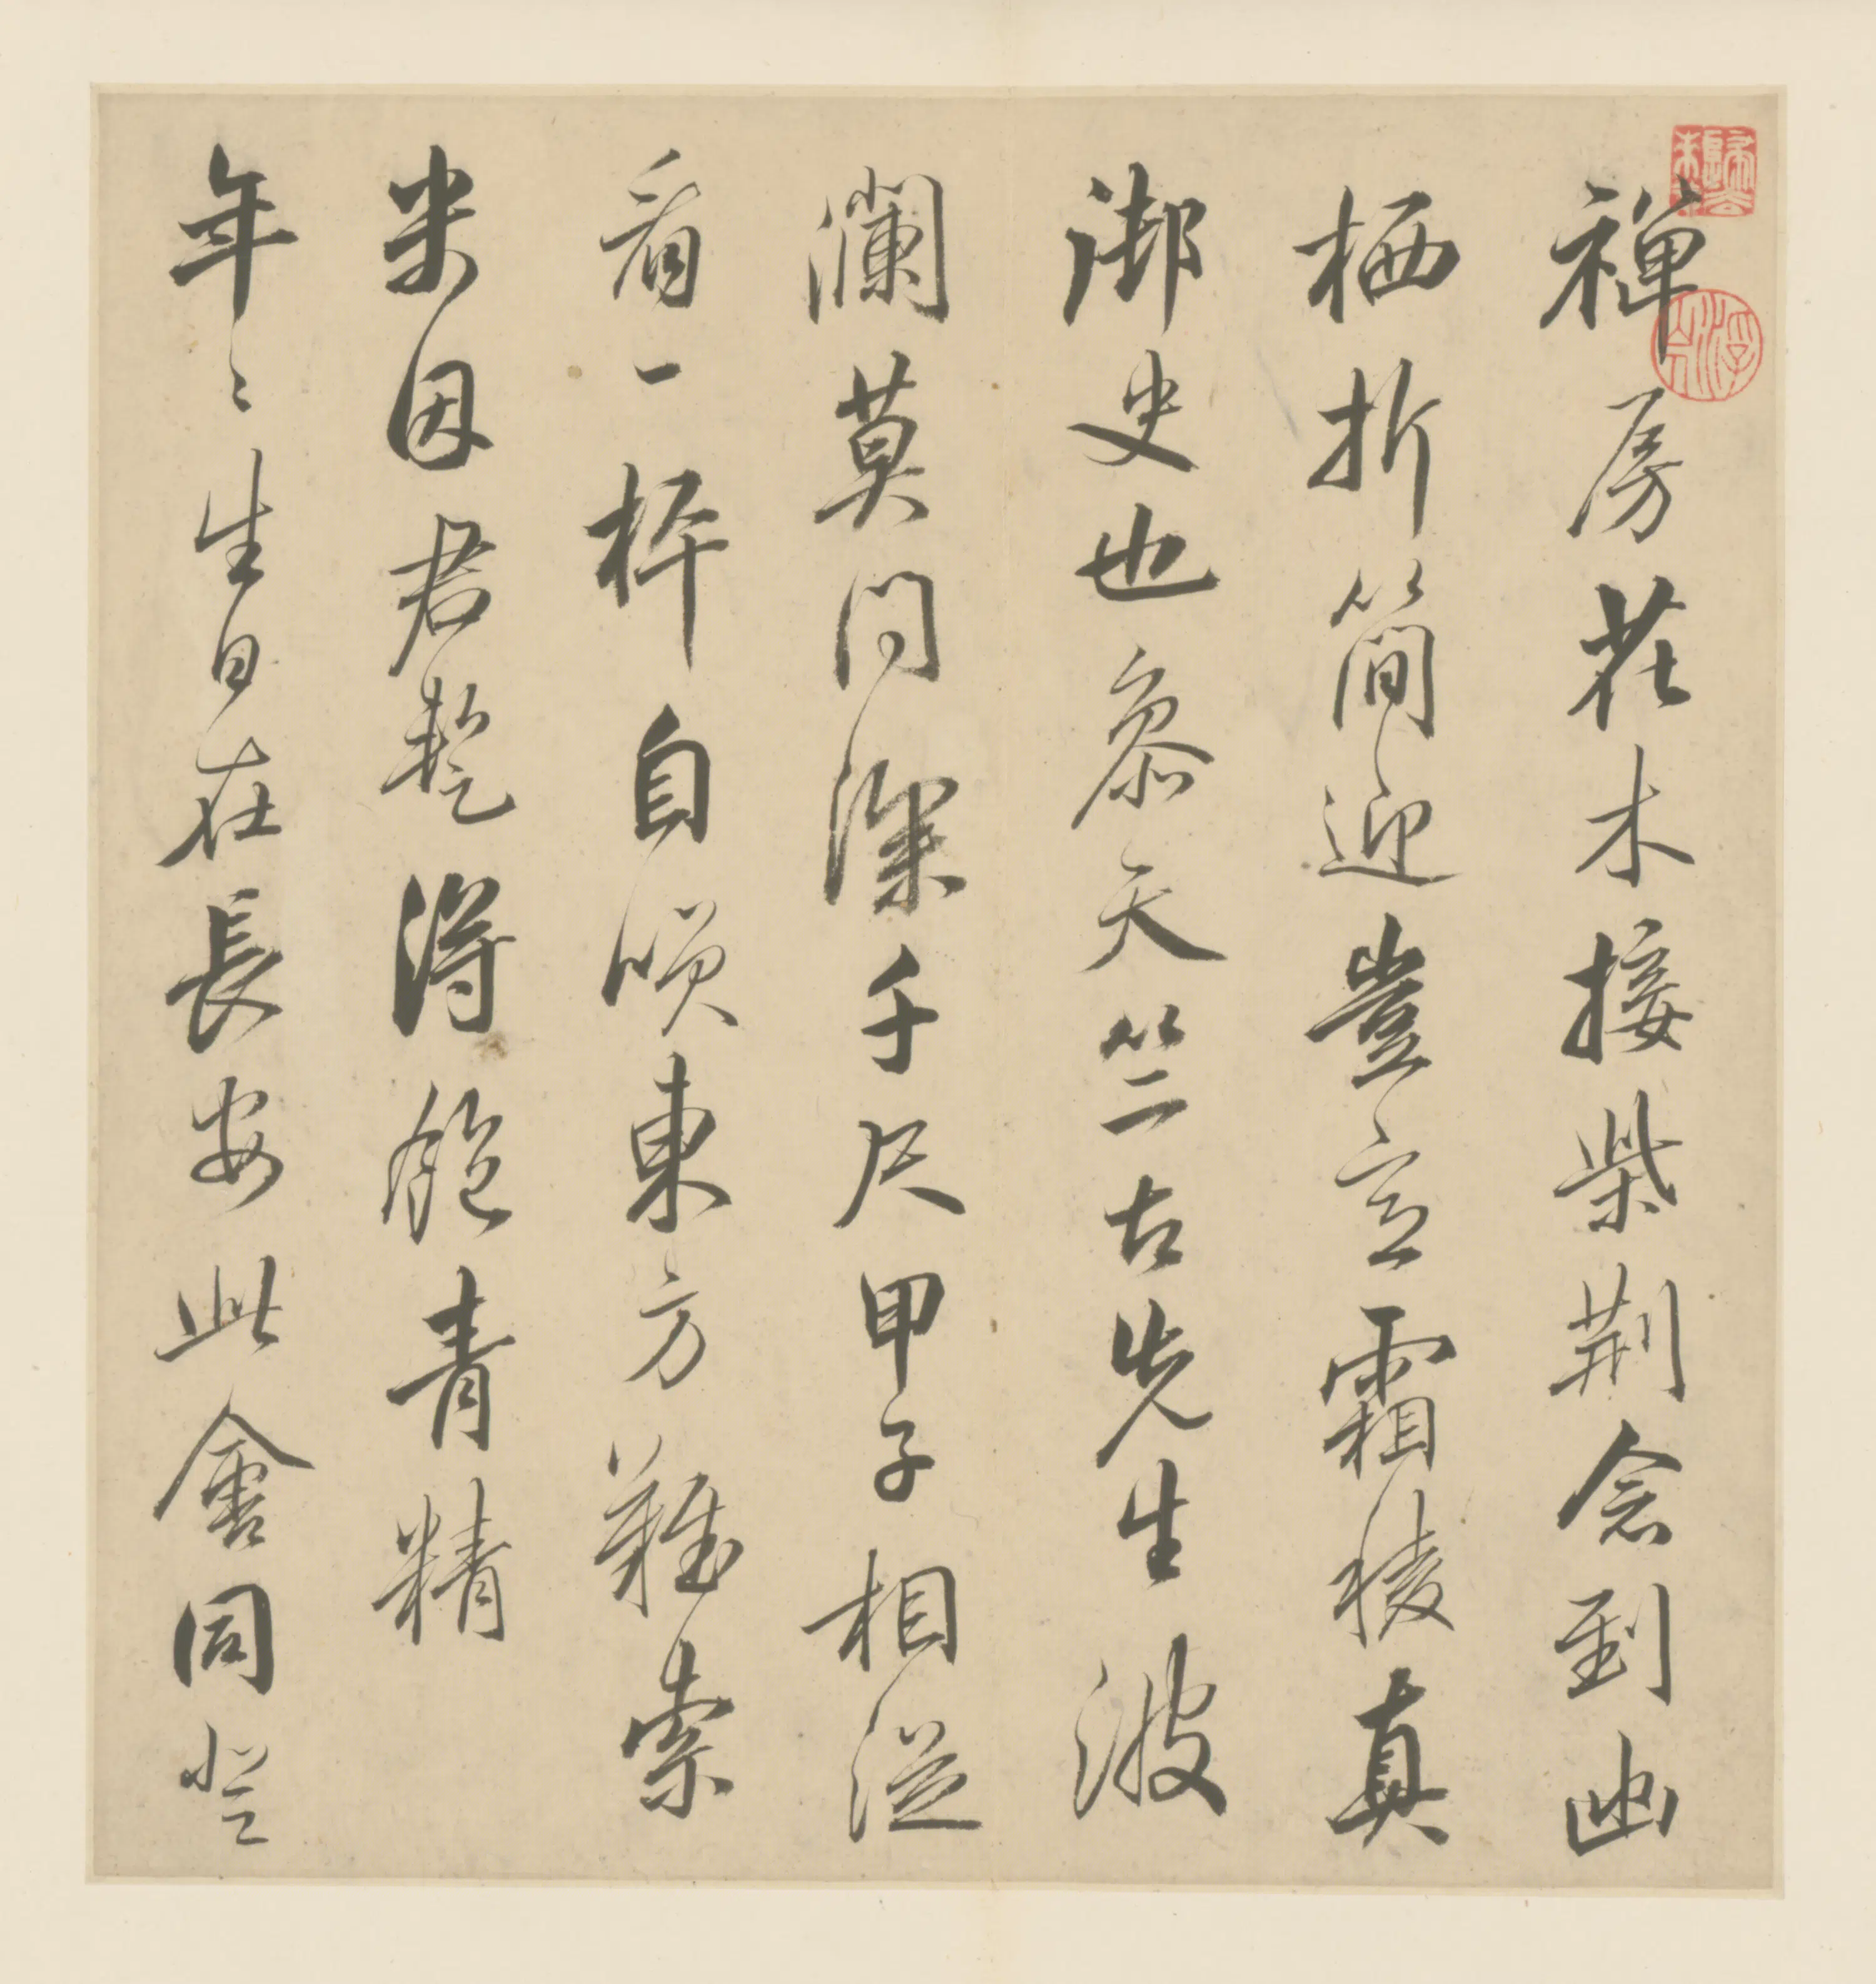 禪房花木接柴荆念到幽
栖折簡迎豈意霜稜真
御史也參天竺古先生波
瀾莫問深千尺甲子相從
看一枰自東方難索
米因君得飽青精
年〻生日在長安此會同登